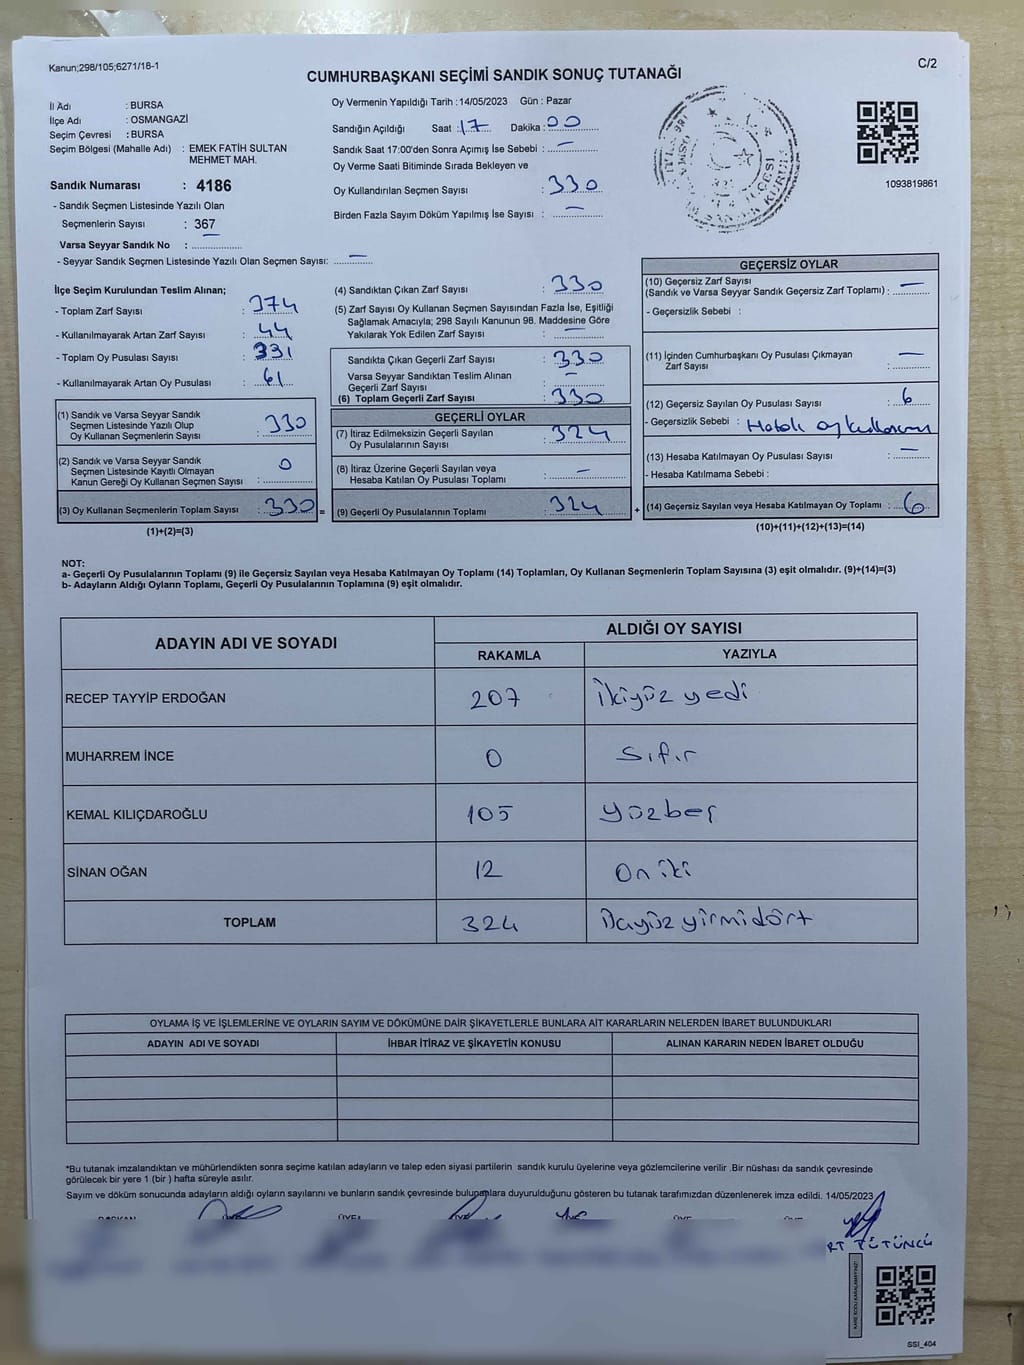 Kanun;298/105;6271/18-1
C/2
CUMHURBAŞKANI SEÇİMİ SANDIK SONUÇ TUTANAĞI
İl Adı : BURSA
İlçe Adı : OSMANGAZİ
Seçim Çevresi : BURSA
Seçim Bölgesi (Mahalle Adı) : EMEK FATİH SULTAN
MEHMET MAH.
Sandık Numarası : 4186
- Sandık Seçmen Listesinde Yazılı Olan
Seçmenlerin Sayısı : 367
Varsa Seyyar Sandık No : —
- Seyyar Sandık Seçmen Listesinde Yazılı Olan Seçmen Sayısı: —
Oy Vermenin Yapıldığı Tarih :14/05/2023 Gün : Pazar
Sandığın Açıldığı Saat :17 Dakika :00
Sandık Saat 17:00'den Sonra Açımış İse Sebebi : —
Oy Verme Saati Bitiminde Sırada Bekleyen ve
Oy Kullandırılan Seçmen Sayısı : 330
Birden Fazla Sayım Döküm Yapılmış İse Sayısı : —
1093819861
İlçe Seçim Kurulundan Teslim Alınan;
- Toplam Zarf Sayısı : 374
- Kullanılmayarak Artan Zarf Sayısı : 44
- Toplam Oy Pusulası Sayısı : 391
- Kullanılmayarak Artan Oy Pusulası : 61
(1) Sandık ve Varsa Seyyar Sandık
Seçmen Listesinde Yazılı Olup
Oy Kullanan Seçmenlerin Sayısı : 330
(2) Sandık ve Varsa Seyyar Sandık
Seçmen Listesinde Kayıtlı Olmayan
Kanun Gereği Oy Kullanan Seçmen Sayısı : 0
(3) Oy Kullanan Seçmenlerin Toplam Sayısı : 330 =
(1)+(2)=(3)
(4) Sandıktan Çıkan Zarf Sayısı : 330
(5) Zarf Sayısı Oy Kullanan Seçmen Sayısından Fazla İse, Eşitliği
Sağlamak Amacıyla; 298 Sayılı Kanunun 98. Maddesine Göre
Yakılarak Yok Edilen Zarf Sayısı : —
Sandıkta Çıkan Geçerli Zarf Sayısı : 330
Varsa Seyyar Sandıktan Teslim Alınan
Geçerli Zarf Sayısı : —
(6) Toplam Geçerli Zarf Sayısı : 330
GEÇERLİ OYLAR
(7) İtiraz Edilmeksizin Geçerli Sayılan
Oy Pusulalarının Sayısı : 324
(8) İtiraz Üzerine Geçerli Sayılan veya
Hesaba Katılan Oy Pusulası Toplamı : —
(9) Geçerli Oy Pusulalarının Toplamı : 324 +
GEÇERSİZ OYLAR
(10) Geçersiz Zarf Sayısı
(Sandık ve Varsa Seyyar Sandık Geçersiz Zarf Toplamı) : —
- Geçersizlik Sebebi :
(11) İçinden Cumhurbaşkanı Oy Pusulası Çıkmayan
Zarf Sayısı : —
(12) Geçersiz Sayılan Oy Pusulası Sayısı : 6
- Geçersizlik Sebebi : Hatalı oy kullanımı
(13) Hesaba Katılmayan Oy Pusulası Sayısı : —
- Hesaba Katılmama Sebebi :
(14) Geçersiz Sayılan veya Hesaba Katılmayan Oy Toplamı : 6
(10)+(11)+(12)+(13)=(14)
NOT:
a- Geçerli Oy Pusulalarının Toplamı (9) ile Geçersiz Sayılan veya Hesaba Katılmayan Oy Toplamı (14) Toplamları, Oy Kullanan Seçmenlerin Toplam Sayısına (3) eşit olmalıdır. (9)+(14)=(3)
b- Adayların Aldığı Oyların Toplamı, Geçerli Oy Pusulalarının Toplamına (9) eşit olmalıdır.
ADAYIN ADI VE SOYADI ALDIĞI OY SAYISI
RAKAMLA YAZIYLA
RECEP TAYYİP ERDOĞAN 207 İkiyüz yedi
MUHARREM İNCE 0 Sıfır
KEMAL KILIÇDAROĞLU 105 Yüzbeş
SİNAN OĞAN 12 On iki
TOPLAM 324 üçyüz yirmidört
OYLAMA İŞ VE İŞLEMLERİNE VE OYLARIN SAYIM VE DÖKÜMÜNE DAİR ŞİKAYETLERLE BUNLARA AİT KARARLARIN NELERDEN İBARET BULUNDUKLARI
ADAYIN ADI VE SOYADI İHBAR İTİRAZ VE ŞİKAYETİN KONUSU ALINAN KARARIN NEDEN İBARET OLDUĞU
*Bu tutanak imzalandıktan ve mühürlendikten sonra seçime katılan adayların ve talep eden siyasi partilerin sandık kurulu üyelerine veya gözlemcilerine verilir .Bir nüshası da sandık çevresinde
görülecek bir yere 1 (bir ) hafta süreyle asılır.
Sayım ve döküm sonucunda adayların aldığı oyların sayılarını ve bunların sandık çevresinde bulunanlara duyurulduğunu gösteren bu tutanak tarafımızdan düzenlenerek imza edildi. 14/05/2023
BAŞKAN ÜYE ÜYE ÜYE ÜYE
RT TÜTÜNCÜ
KARE KODU KARALAMAYINIZ!
SSİ_404